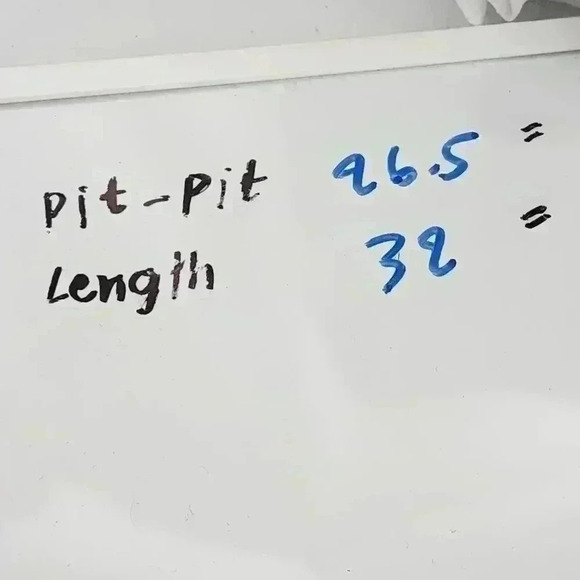 Pit-Pit 26.5 "
Length 32 "